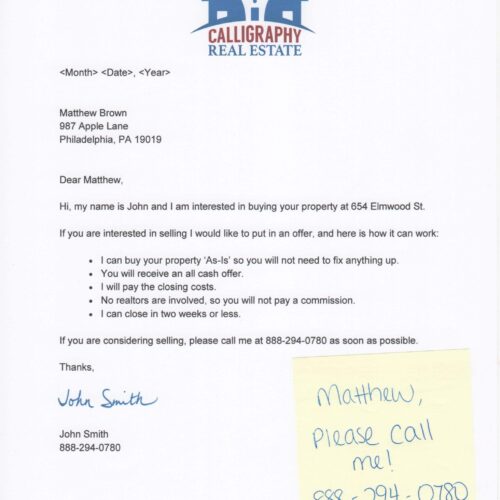 CALLIGRAPHY
REAL ESTATE
<Month> <Date>, <Year>
Matthew Brown
987 Apple Lane
Philadelphia, PA 19019
Dear Matthew,
Hi, my name is John and I am interested in buying your property at 654 Elmwood St.
If you are interested in selling I would like to put in an offer, and here is how it can work:
• I can buy your property 'As-Is' so you will not need to fix anything up.
• You will receive an all cash offer.
• I will pay the closing costs.
• No realtors are involved, so you will not pay a commission.
• I can close in two weeks or less.
If you are considering selling, please call me at 888-294-0780 as soon as possible.
Thanks,
John Smith
John Smith
888-294-0780
Matthew,
Please call
me!
888-294-0780